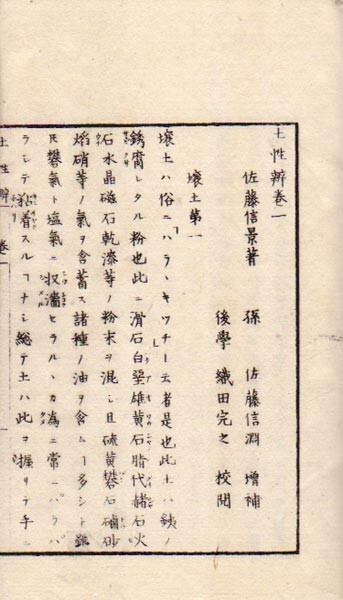 土性辨卷一
佐藤信景著　孫　佐藤信淵　增補
後學　織田完之　校閲
壤土第一
壤土ハ俗ニ「ハラヽキツチ」ト云者是也此土ハ鐵ノ
銹腐シタル粉也此ニ滑石白堊雄黄石脂代赭石火
石水晶磁石乾漆等ノ粉末ヲ混シ且硫黄礬石硇砂
焰硝等ノ氣ヲ含蓄ス諸種ノ油ヲ含ムヿ多シト雖
𪜈礬氣ト塩氣ニ收濇セラルヽカ為ニ常ニパラパ
ラシテ粘着スルヿナシ総テ土ハ此ヲ握リテ手ニ
土性辨　卷一